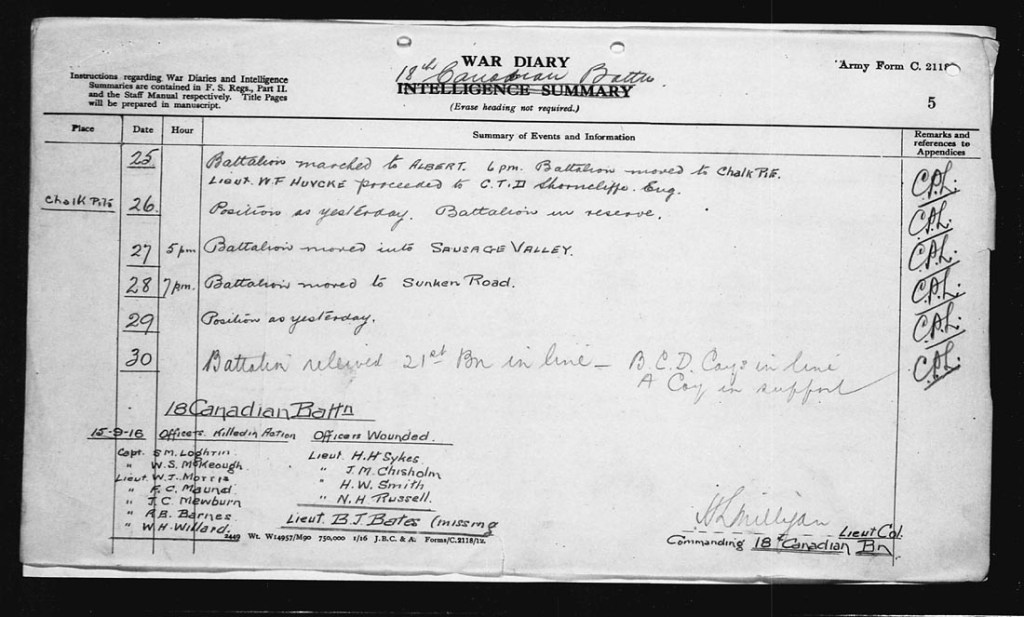 WAR DIARY
18th Canadian Battn
INTELLIGENCE SUMMARY
(Erase heading not required.)
Army Form C. 2118
5
Instructions regarding War Diaries and Intelligence
Summaries are contained in F. S. Regs., Part II.
and the Staff Manual respectively. Title Pages
will be prepared in manuscript.
Place Date Hour Summary of Events and Information Remarks and references to Appendices
25 Battalion marched to ALBERT. 6pm. Battalion moved to Chalk Pits. C.A.L.
Lieut. W.F HUYCKE proceeded to C.T.D Shorncliffe. Eng.
Chalk Pits 26. Position as yesterday. Battalion in reserve. C.A.L.
27 5pm Battalion moved into SAUSAGE VALLEY. C.A.L.
28 7pm. Battalion moved to Sunken Road. C.A.L.
29 Position as yesterday. C.A.L.
30 Battalion releived 21st Bn in line — B.C.D. Coys in line C.A.L.
A Coy in support
18 Canadian Battn
15-9-16 Officers Killed in Action Officers Wounded.
Capt. S.M. Loghrin Lieut. H.H Sykes
" W.S. McKeough " J.M. Chisholm
Lieut W.J. Morris " H.W. Smith
" F.C. Maund " N.H Russell.
" J.C. Mewburn
" R.B. Barnes Lieut. B.J. Bates (missing
" W.H. Willard.
2449 Wt. W14957/M90 750,000 1/16 J.B.C. & A. Forms/C.2118/12.
Milligan Lieut Col.
Commanding 18th Canadian Bn